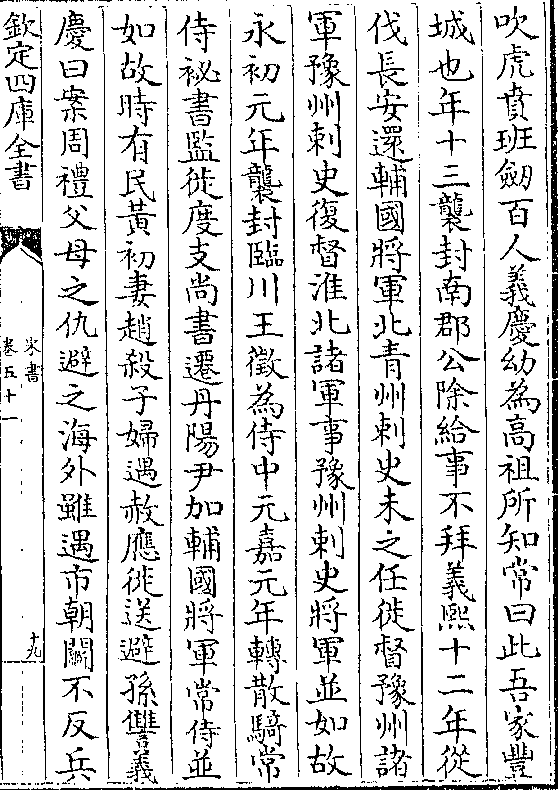 吹虎賁班劒百人義慶幼為高祖所知常曰此吾家豐
城也年十三襲封南郡公除給事不拜義熙十二年從
伐長安還輔國將軍北青州刺史未之任徙督豫州諸
軍豫州刺史復督淮北諸軍事豫州刺史將軍並如故
永初元年襲封臨川王徵為侍中元嘉元年轉散騎常
侍祕書監徙度支尚書遷丹陽尹加輔國將軍常侍並
如故時有民黃初妻趙殺子婦遇赦應徙送避孫讐義
慶曰案周禮父母之仇避之海外雖遇市朝鬭不反兵
欽定四庫全書
宋書
卷五十一
十九